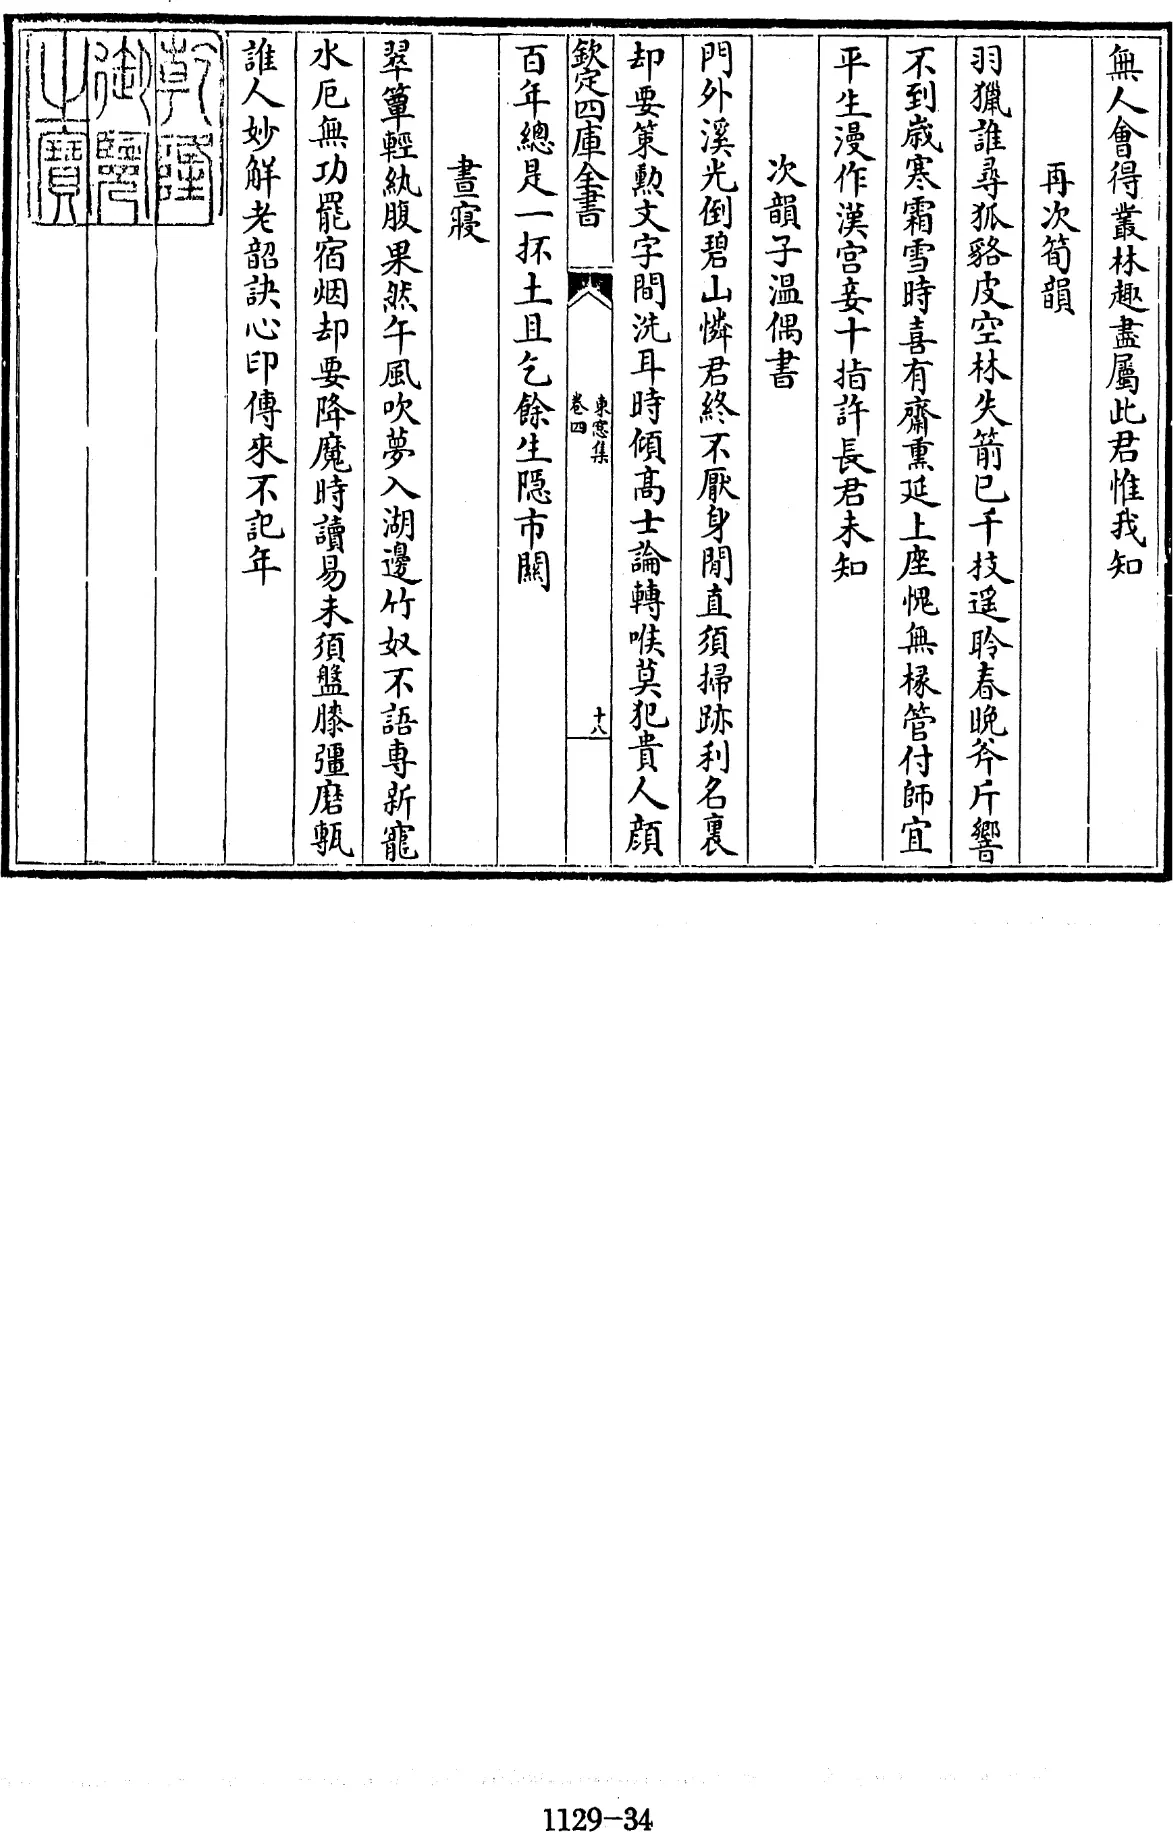 無人會得叢林趣盡屬此君惟我知
再次筍韻
羽獵誰尋狐貉皮空林失箭已千技遥聆春晚斧斤響
不到嵗寒霜雪時喜有齋熏延上座愧無椽管付師宜
平生漫作漢宮妾十指許長君未知
次韻子温偶書
門外溪光倒碧山憐君終不厭身閒直須掃跡利名裏
却要策勲文字間洗耳時傾高士論轉喉莫犯貴人顔
欽定四庫全書
東窓集
卷四
十八
百年總是一抔土且乞餘生隠市闤
晝寢
翠簟輕紈腹果然午風吹夢入湖邊竹奴不語專新寵
水厄無功罷宿烟却要降魔時讀易未須盤膝彊磨甎
誰人妙解老韶訣心印傳來不記年
乾隆
御覽
之寶
1129-34